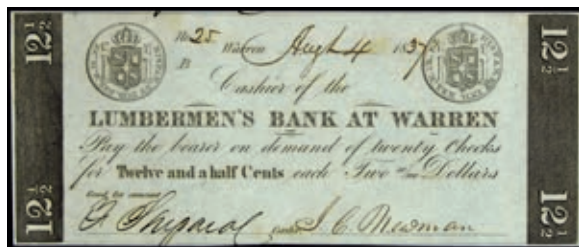 12½ 12½
No 25 Warren Augt 4 1837
Cashier of the
LUMBERMEN'S BANK AT WARREN
Pay the bearer on demand of twenty Checks
for Twelve and a half Cents each Two Dollars
Good for amount
12½ 12½